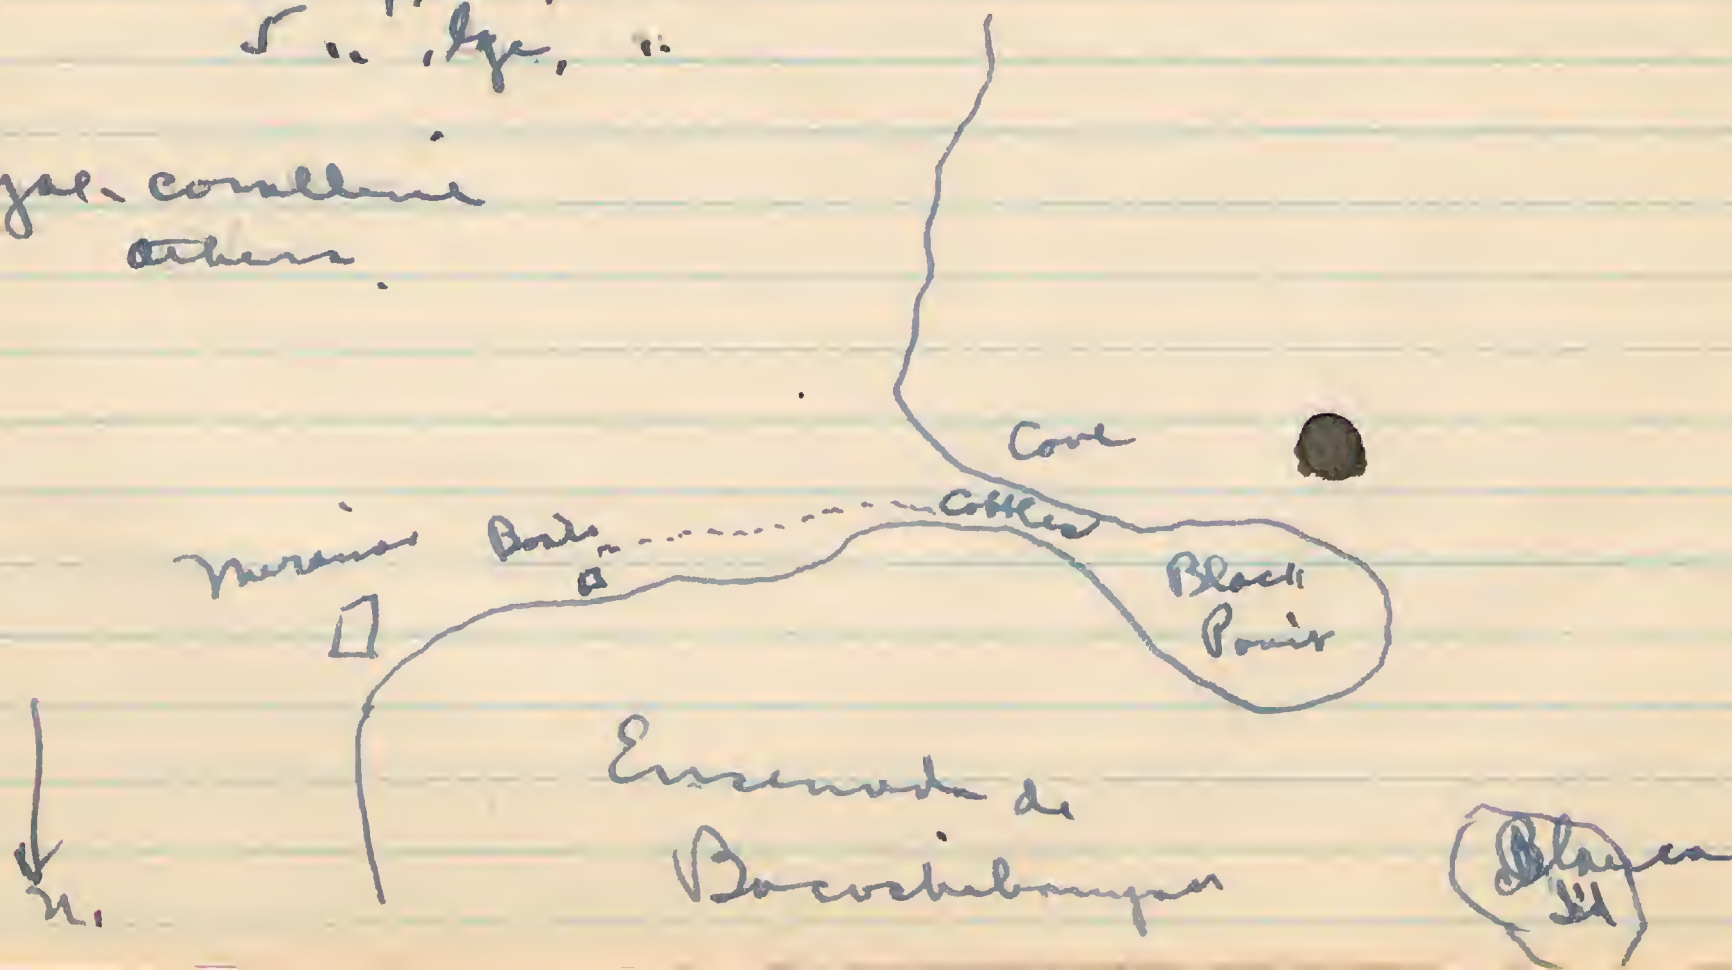 5 " , lge, "
coralline
others.
Cove
Cobbles
Miramar Boats
Black
Point
Ensenada de
Bacochibampo
Blanca
Isd
N.